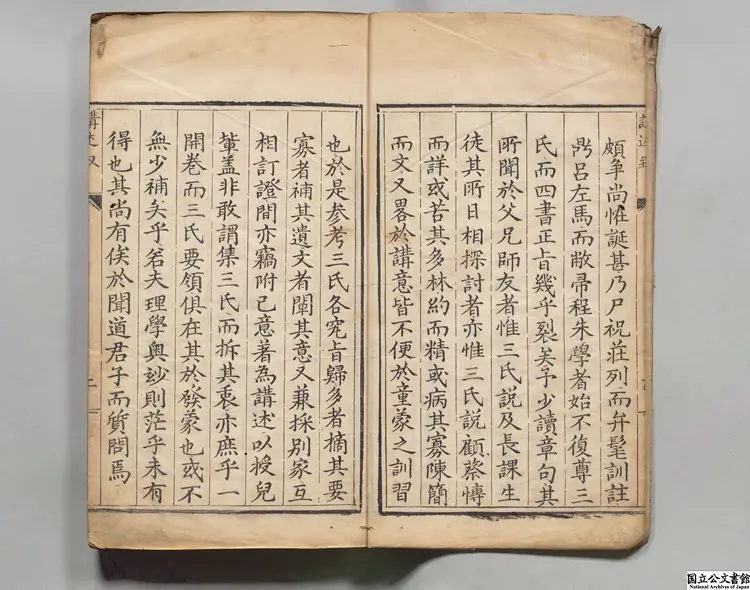 頗爭尚恠誕甚乃尸祝莊列而弁髦訓註
鼎呂左馬而敝帚程朱學者始不復尊三
氏而四書正旨幾乎裂矣予少讀章句其
所聞於父兄師友者惟三氏說及長課生
徒其所日相探討者亦惟三氏說顧蔡慱
而詳或苦其多林約而精或病其寡陳簡
而文又畧於講意皆不便於童蒙之訓習
也於是参考三氏各究旨歸多者摘其要
寡者補其遺文者闡其意又兼採別家互
相訂證間亦竊附己意著為講述以授兒
輩盖非敢謂集三氏而拆其衷亦庶乎一
開卷而三氏要領俱在其於發蒙也或不
無少補矣乎若夫理學奥玅則茫乎未有
得也其尚有俟於聞道君子而質問焉
講述
二
国立公文書館
National Archives of Japan